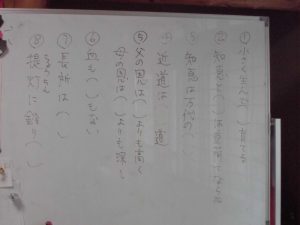 ① 小さく生んで（ ）育てる
② 知恵と（ ）は
③ 知恵は万代の（ ）
④ 近道は 道
⑤ 父の恩は（ ）よりも高く
母の恩は（ ）よりも深し
⑥ 血も（ ）もない
⑦ 長所は（ ）
⑧ 提灯に釣り（ ）
ちょうちん